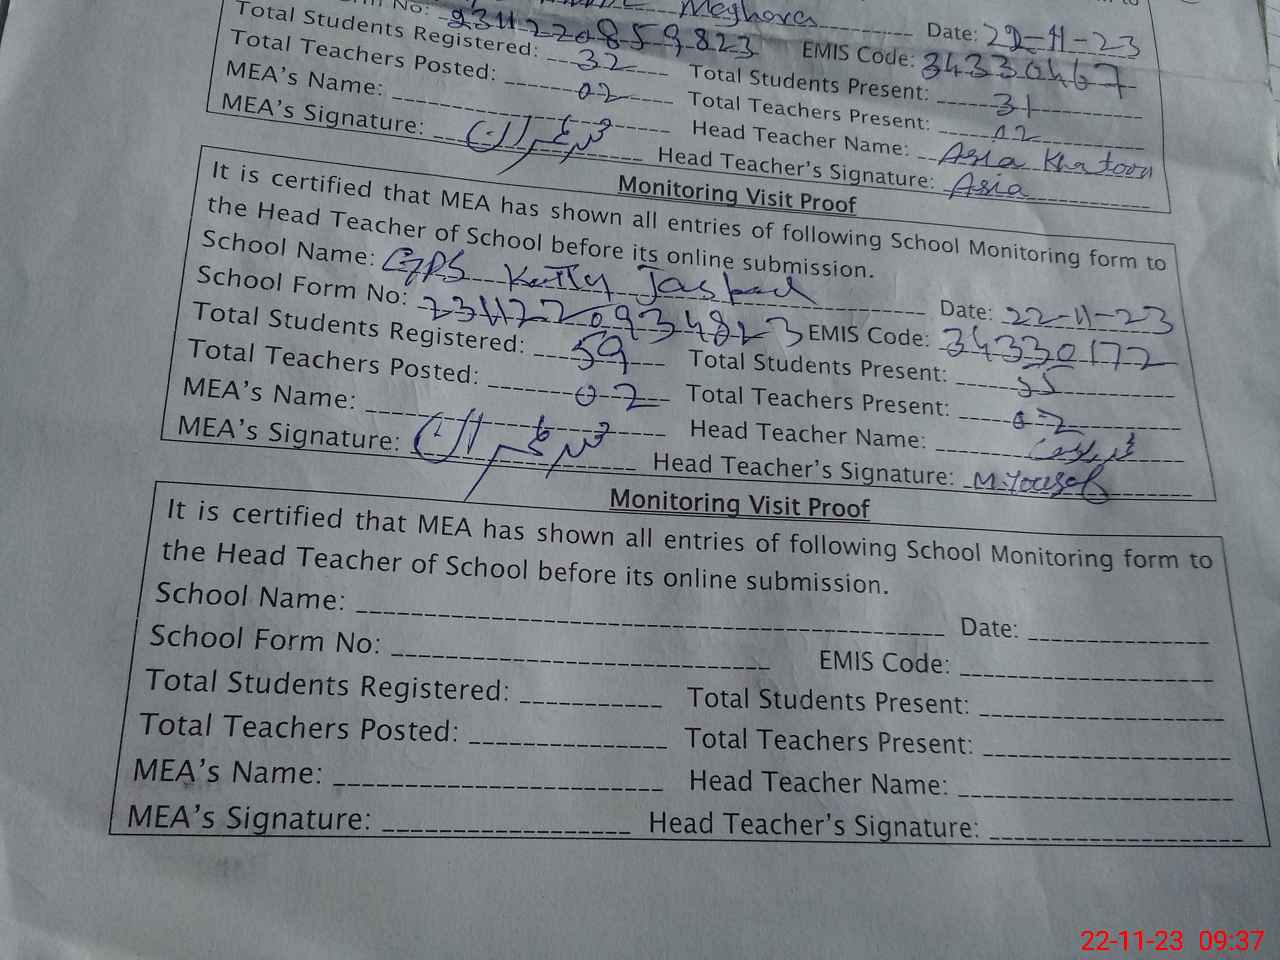 Meghova Date: 22-11-23
No: 2311220859823 EMIS Code: 34330467
Total Students Registered: 32 Total Students Present: 31
Total Teachers Posted: 02 Total Teachers Present: 02
MEA's Name: Head Teacher Name: Asia Khatoon
MEA's Signature: Head Teacher's Signature: Asia
Monitoring Visit Proof
It is certified that MEA has shown all entries of following School Monitoring form to
the Head Teacher of School before its online submission.
School Name: GPS Date: 22-11-23
School Form No: 2311220934823 EMIS Code: 34330172
Total Students Registered: 59 Total Students Present: 55
Total Teachers Posted: 02 Total Teachers Present: 02
MEA's Name: Head Teacher Name: محمد یوسف
MEA's Signature: Head Teacher's Signature: M. Yousaf
Monitoring Visit Proof
It is certified that MEA has shown all entries of following School Monitoring form to
the Head Teacher of School before its online submission.
School Name: Date:
School Form No: EMIS Code:
Total Students Registered: Total Students Present:
Total Teachers Posted: Total Teachers Present:
MEA's Name: Head Teacher Name:
MEA's Signature: Head Teacher's Signature:
22-11-23 09:37